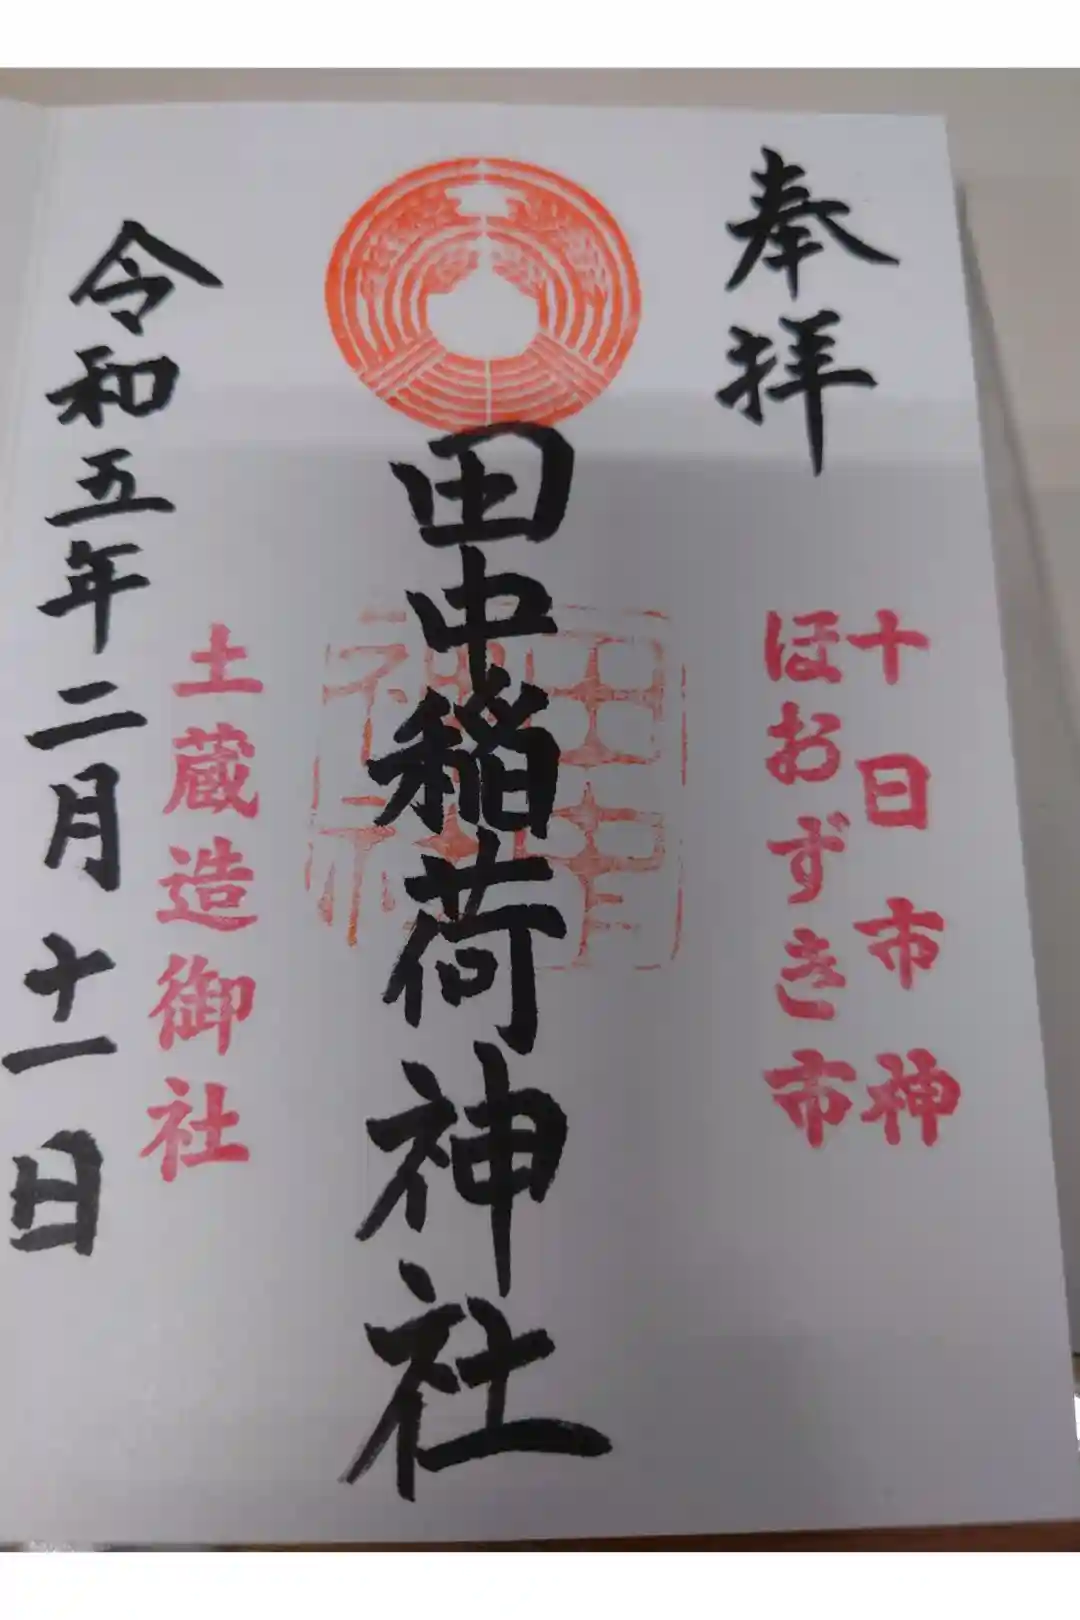 奉拝
十日市神
ほおずき市
田中稲荷神社
土蔵造御社
令和五年二月十一日